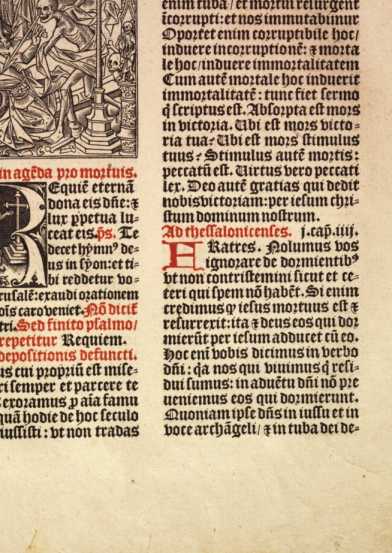 in agēda pro mortuis.
Requiē eternā
dona eis dn̄e: ⁊
lux ꝑpetua lu-
ceat eis. p̄s. Te
decet hȳmnꝰ de-
us in syon: et ti-
bi reddetur vo-
rusalē: exaudi orationem
oīs caro veniet. Nō dicit̄
tri. Sed finito psalmo/
repetitur Requiem.
depositionis defuncti.
us cui propriū est mise-
ri semper et parcere te
exoramus ꝓ aīa famu
quā hodie de hoc seculo
iussisti: vt non tradas
enim tuba/ et mortui resurgent
īcorrupti: et nos immutabimur
Oportet enim corruptibile hoc/
induere incorruptionē: ⁊ morta
le hoc/ induere immortalitatem
Cum autē mortale hoc induerit
immortalitatē: tunc fiet sermo
q̄ scriptus est. Absorpta est mors
in victoria. Ubi est mors victo-
ria tua? Ubi est mors stimulus
tuus? Stimulus autē mortis:
peccatū est. Uirtus vero peccati
lex. Deo autē gratias qui dedit
nobis victoriam: per iesum chri-
stum dominum nostrum.
Ad thessalonicenses. j. cap. iiij.
FRatres. Nolumus vos
ignorare de dormientibꝰ
vt non contristemini sicut et ce-
teri qui spem nō habēt. Si enim
credimus ꝙ iesus mortuus est ⁊
resurrexit: ita ⁊ deus eos qui dor
mierūt per iesum adducet cū eo.
Hoc enī vobis dicimus in verbo
dn̄i: q̄a nos qui viuimus q̄ resi-
dui sumus: in aduētu dn̄i nō pre
ueniemus eos qui dormierunt.
Quoniam ipse dn̄s in iussu et in
voce archāgeli/ ⁊ in tuba dei de-